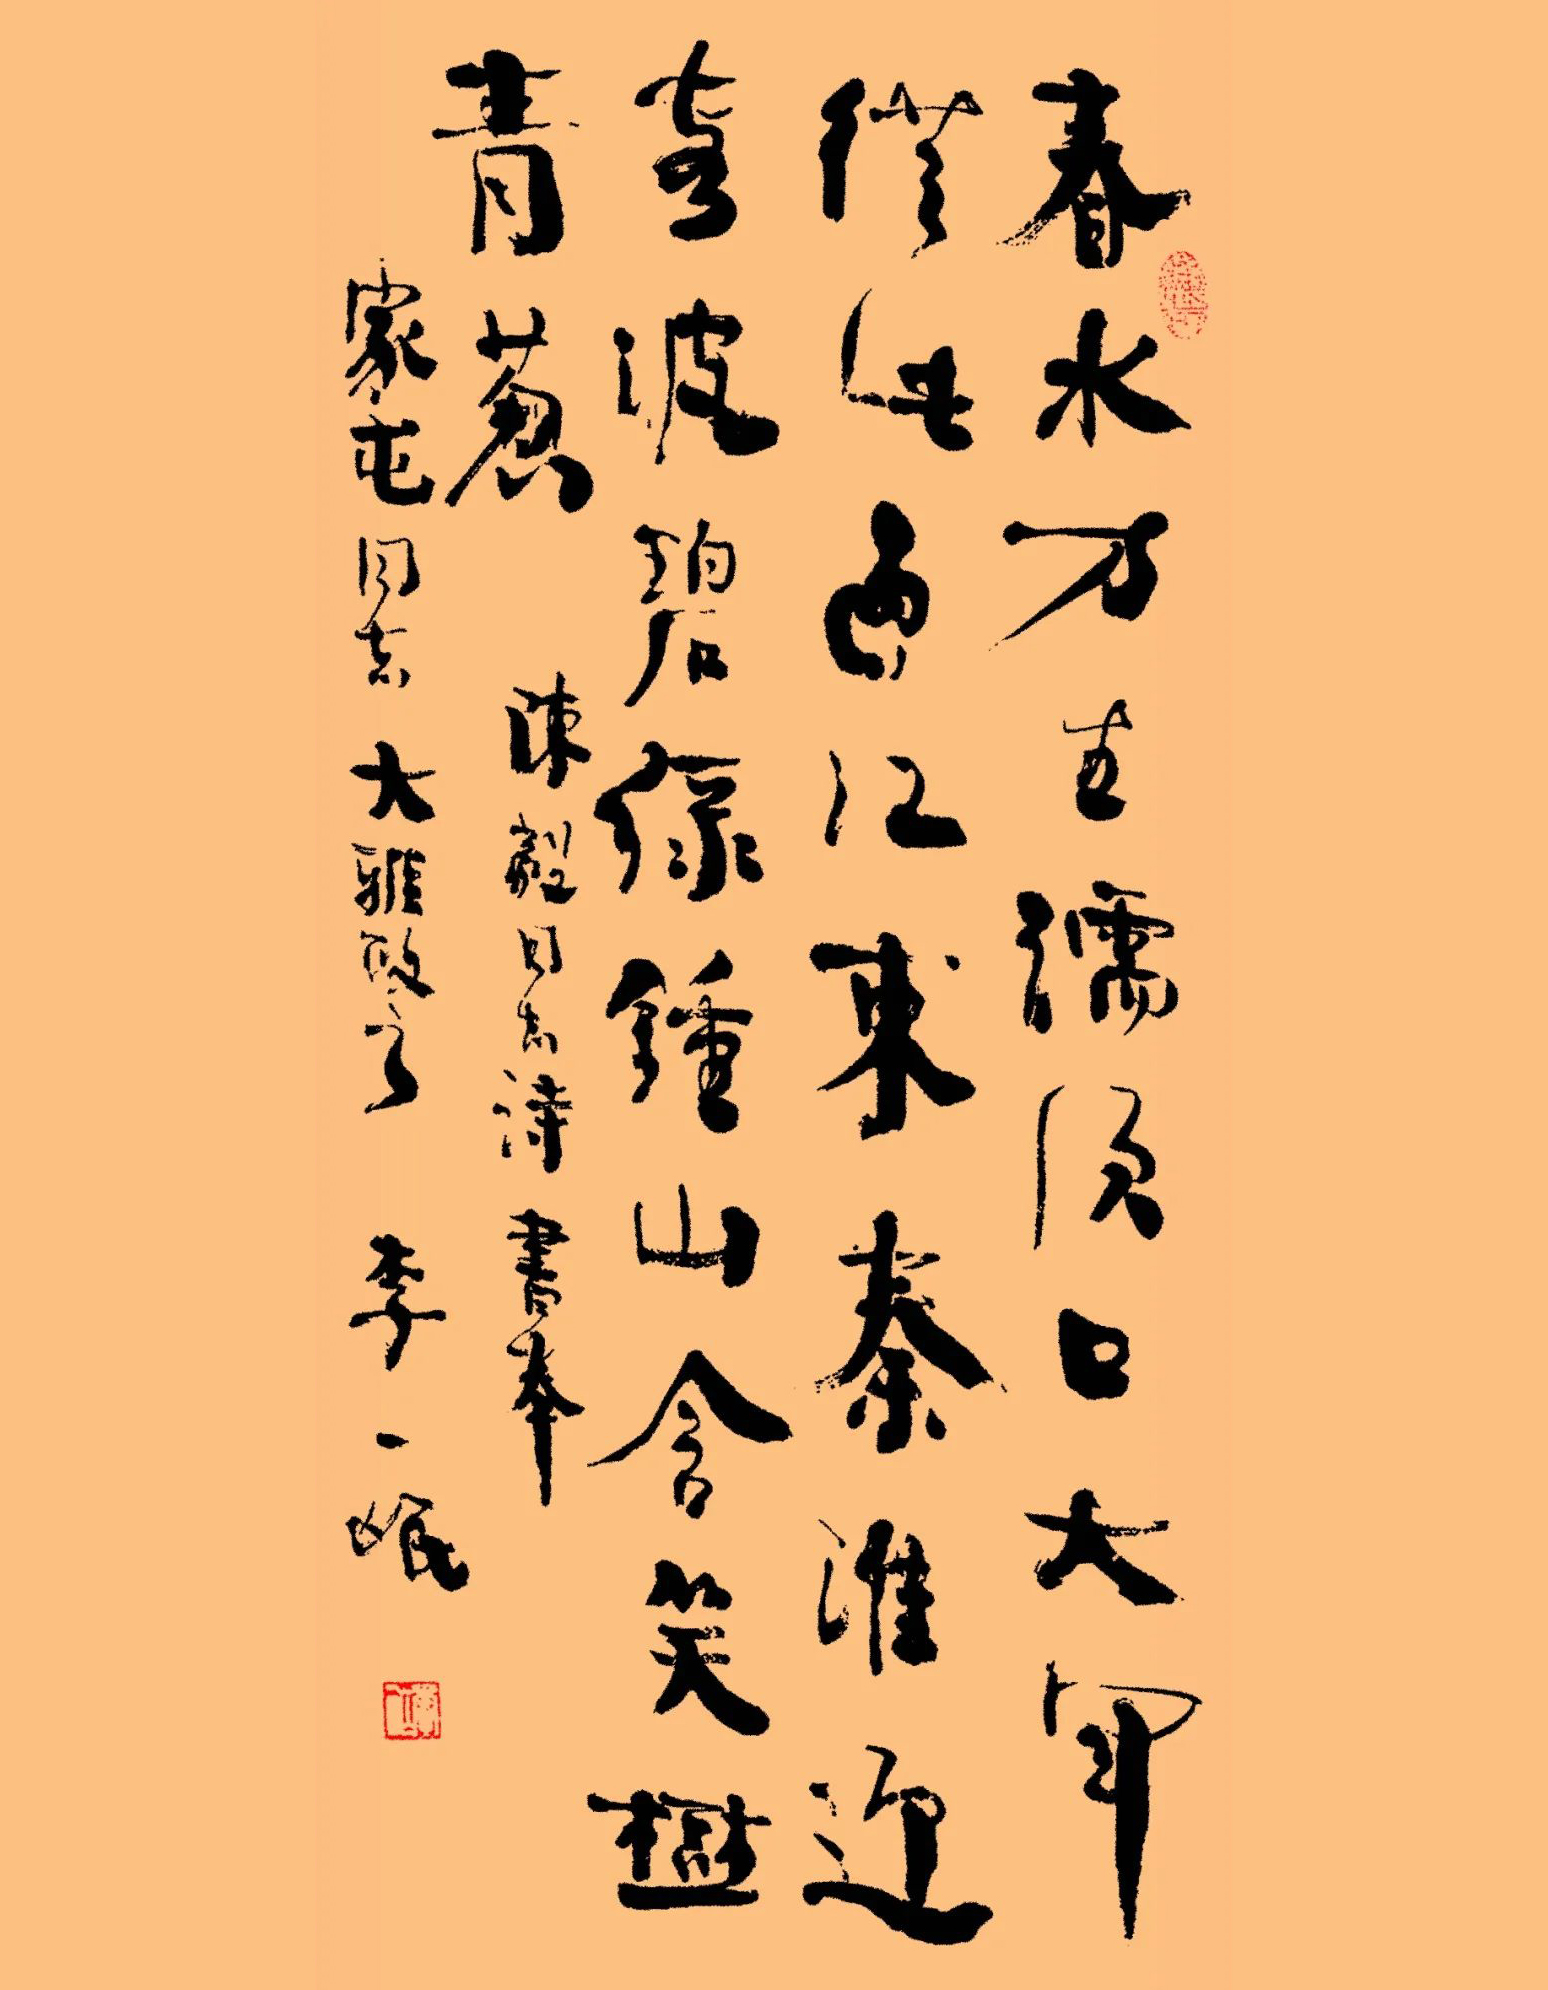 春水方生濡須口大軍
從此向江東秦淮迎
客波碧綠鍾山含笑
青蔥
陳毅同志詩書奉
家屯同志大雅政之 李一氓